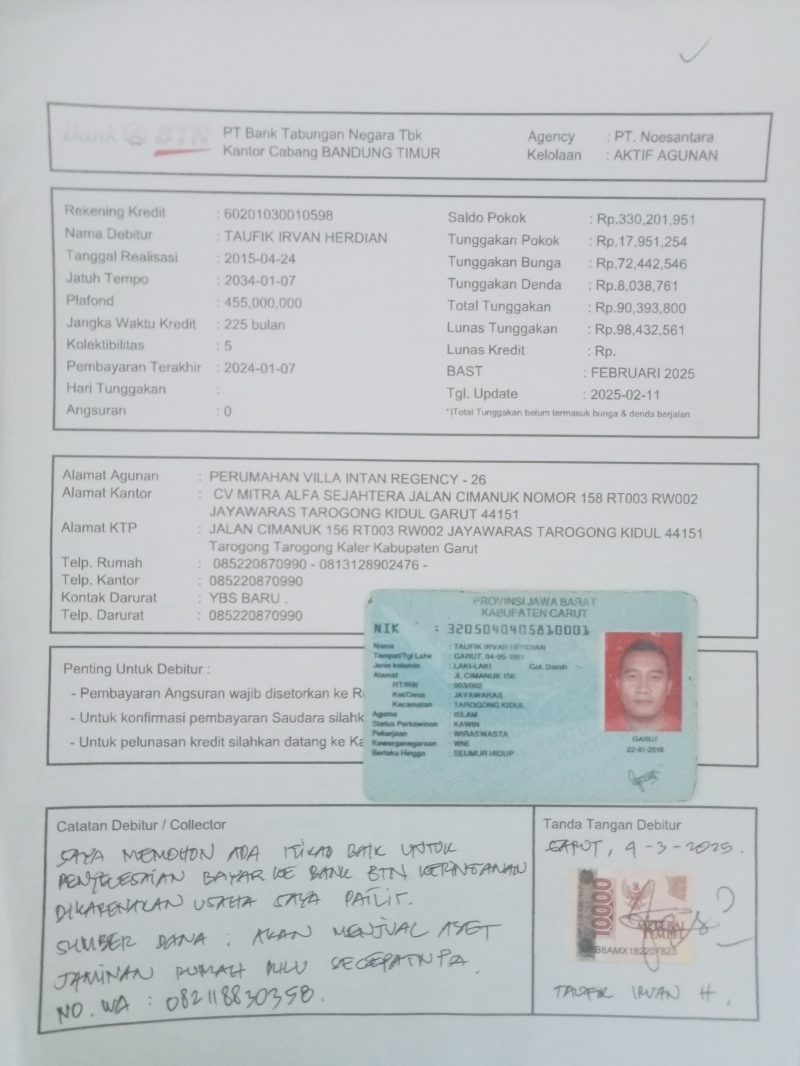 Bank BTN
PT Bank Tabungan Negara Tbk
Kantor Cabang BANDUNG TIMUR
Agency : PT. Noesantara
Kelolaan : AKTIF AGUNAN
Rekening Kredit : 60201030010598
Nama Debitur : TAUFIK IRVAN HERDIAN
Tanggal Realisasi : 2015-04-24
Jatuh Tempo : 2034-01-07
Plafond : 455,000,000
Jangka Waktu Kredit : 225 bulan
Kolektibilitas : 5
Pembayaran Terakhir : 2024-01-07
Hari Tunggakan :
Angsuran : 0
Saldo Pokok : Rp.330,201,951
Tunggakan Pokok : Rp.17,951,254
Tunggakan Bunga : Rp.72,442,546
Tunggakan Denda : Rp.8,038,761
Total Tunggakan : Rp.90,393,800
Lunas Tunggakan : Rp.98,432,561
Lunas Kredit : Rp.
BAST : FEBRUARI 2025
Tgl. Update : 2025-02-11
*)Total Tunggakan belum termasuk bunga & denda berjalan
Alamat Agunan : PERUMAHAN VILLA INTAN REGENCY - 26
Alamat Kantor : CV MITRA ALFA SEJAHTERA JALAN CIMANUK NOMOR 158 RT003 RW002
JAYAWARAS TAROGONG KIDUL GARUT 44151
Alamat KTP : JALAN CIMANUK 156 RT003 RW002 JAYAWARAS TAROGONG KIDUL 44151
Tarogong Tarogong Kaler Kabupaten Garut
Telp. Rumah : 085220870990 - 0813128902476 -
Telp. Kantor : 085220870990
Kontak Darurat : YBS BARU .
Telp. Darurat : 085220870990
Penting Untuk Debitur :
- Pembayaran Angsuran wajib disetorkan ke
- Untuk konfirmasi pembayaran Saudara silahk
- Untuk pelunasan kredit silahkan datang ke Ka
PROVINSI JAWA BARAT
KABUPATEN GARUT
NIK : 3205040405810001
Nama : TAUFIK IRVAN HERDIAN
Tempat/Tgl Lahir : GARUT, 04-05-1981
Jenis kelamin : LAKI-LAKI Gol. Darah : -
Alamat : JL CIMANUK 156
RT/RW : 003/002
Kel/Desa : JAYAWARAS
Kecamatan : TAROGONG KIDUL
Agama : ISLAM
Status Perkawinan : KAWIN
Pekerjaan : WIRASWASTA
Kewarganegaraan : WNI
Berlaku Hingga : SEUMUR HIDUP
GARUT
22-01-2016
Catatan Debitur / Collector
SAYA MEMOHON ADA ITIKAD BAIK UNTUK
PENYELESAIAN BAYAR KE BANK BTN KERINGANAN
DIKARENAKAN USAHA SAYA PAILIT.
SUMBER DANA : AKAN MENJUAL ASET
JAMINAN RUMAH DULU SECEPATNYA.
NO. WA : 082118830350.
Tanda Tangan Debitur
GARUT, 9-3-2025.
10000
METERAI
TEMPEL
TAUFIK IRVAN H.